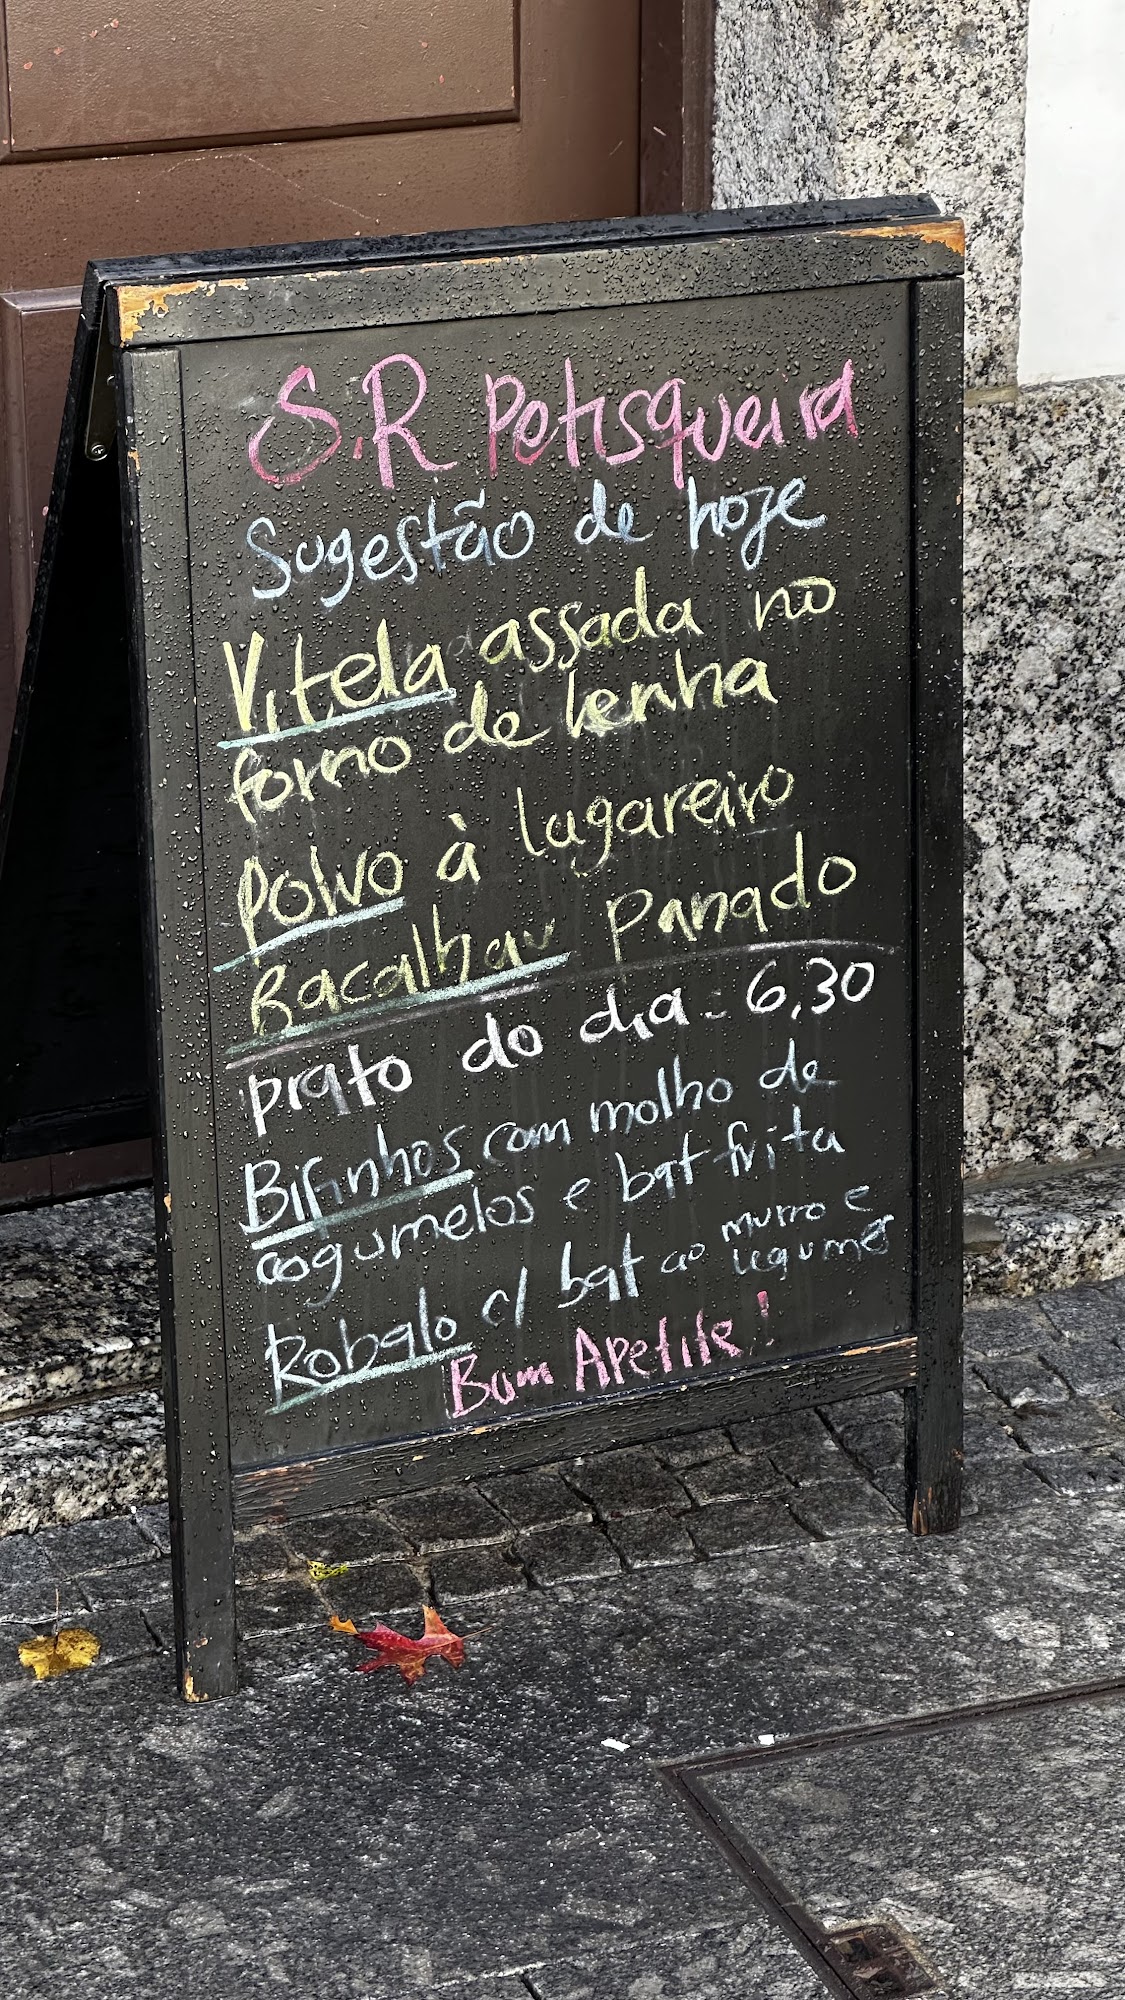 S.R Petisqueira
Sugestão de hoje
Vitela assada no
forno de lenha
Polvo à lugareiro
Bacalhau Panado
prato do dia = 6,30
Bifinhos com molho de
cogumelos e bat frita
Robalo c/ bat ao murro e
legumes
Bom Apetite!